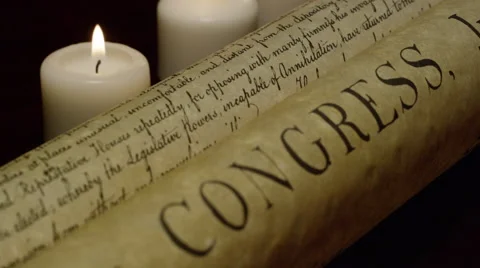 at places unusual, uncomfortable, and distant from the
Representative Houses repeatedly, for opposing with manly firmness his
elected, whereby the Legislative Powers, incapable of Annihilation, have returned to the
from without
CONGRESS,